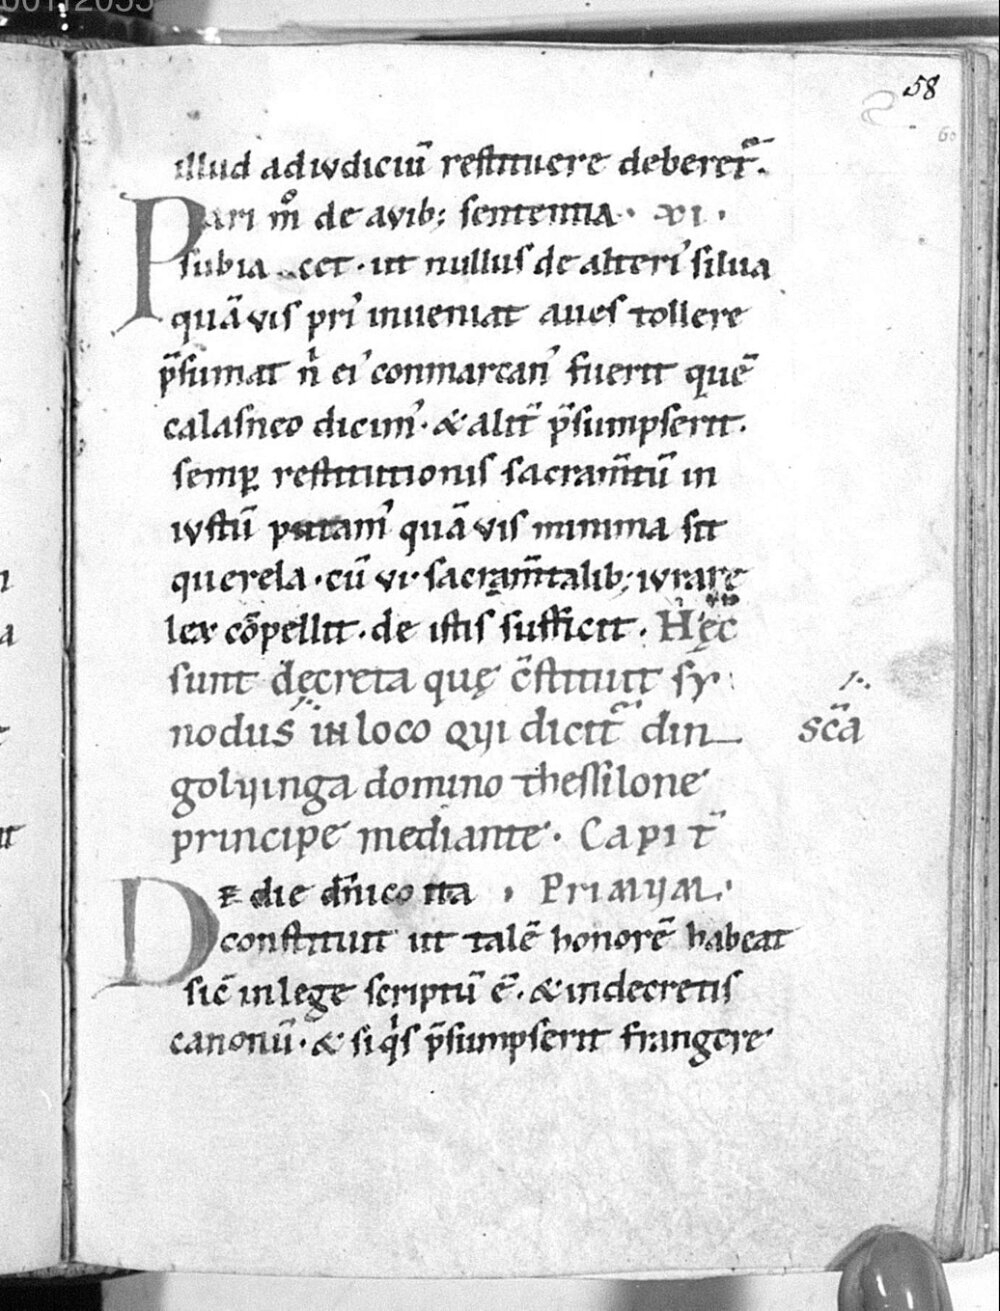 58
60
illud adiudiciū restituere deberet̃.
Pari m̊ de auib; sententia. XXI.
subia cet. ut nullus de alteri' silua
quā vis pri' inueniat aues tollere
p̄sumat n̄ ei' conmarcan' fuerit quē
calasneo dicim'. & alit̃ p̄sumpserit.
semꝑ restitutionis sacram̄tū in
iustū putam' quā vis minima sit
querela. cū vi. sacram̄talib; iurare
lex cōpellit. de istis sufficit. Hęc
sunt decreta quę c̄stituit sy
nodus in loco qui dicit̃ din
sc̄a
golуinga domino thessilone
principe mediante. Capit̃
De die dn̄ico ita . Primum.
constituit ut talē honorē habeat
sic̄ in lege scriptū ē. & indecretis
canonū. & siq̍s p̄sumpserit frangere